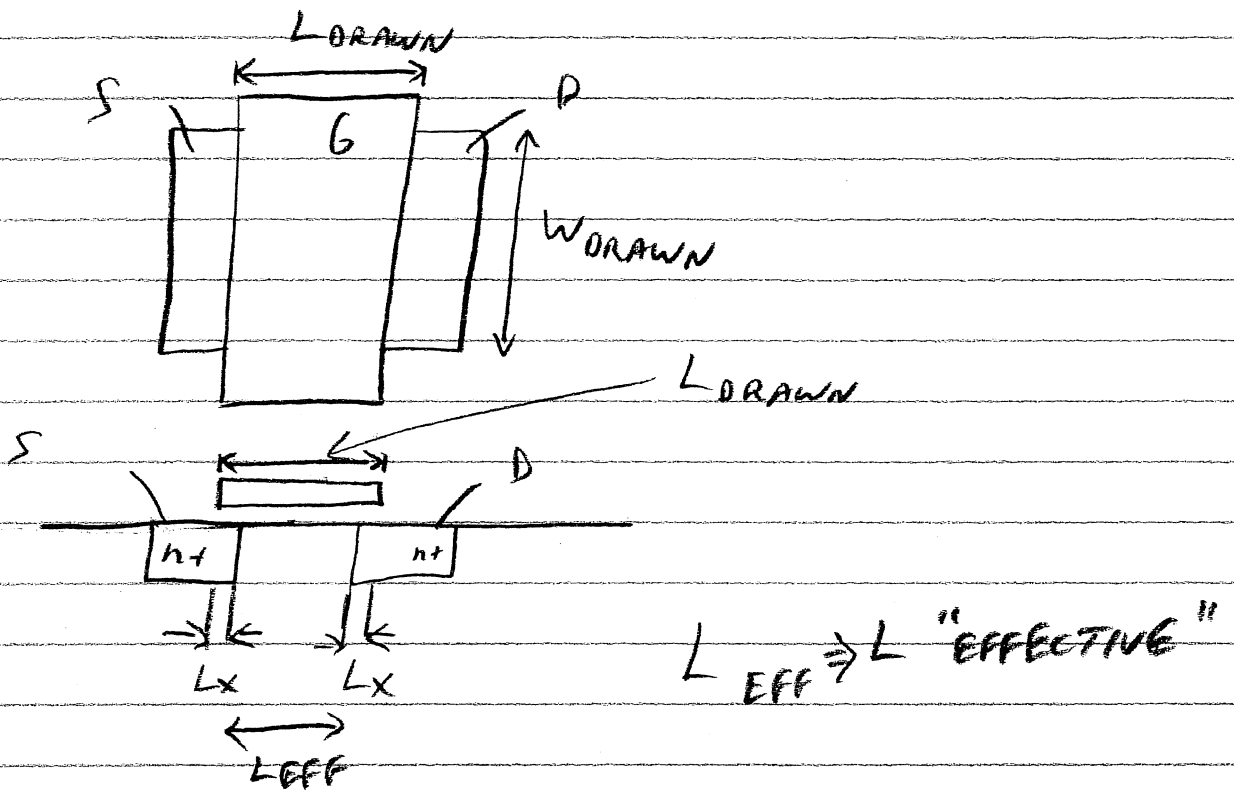 L DRAWN
S G D
W DRAWN
L DRAWN
S D
n+ n+
Lx Lx
L EFF ⇒ L "EFFECTIVE"
LEFF